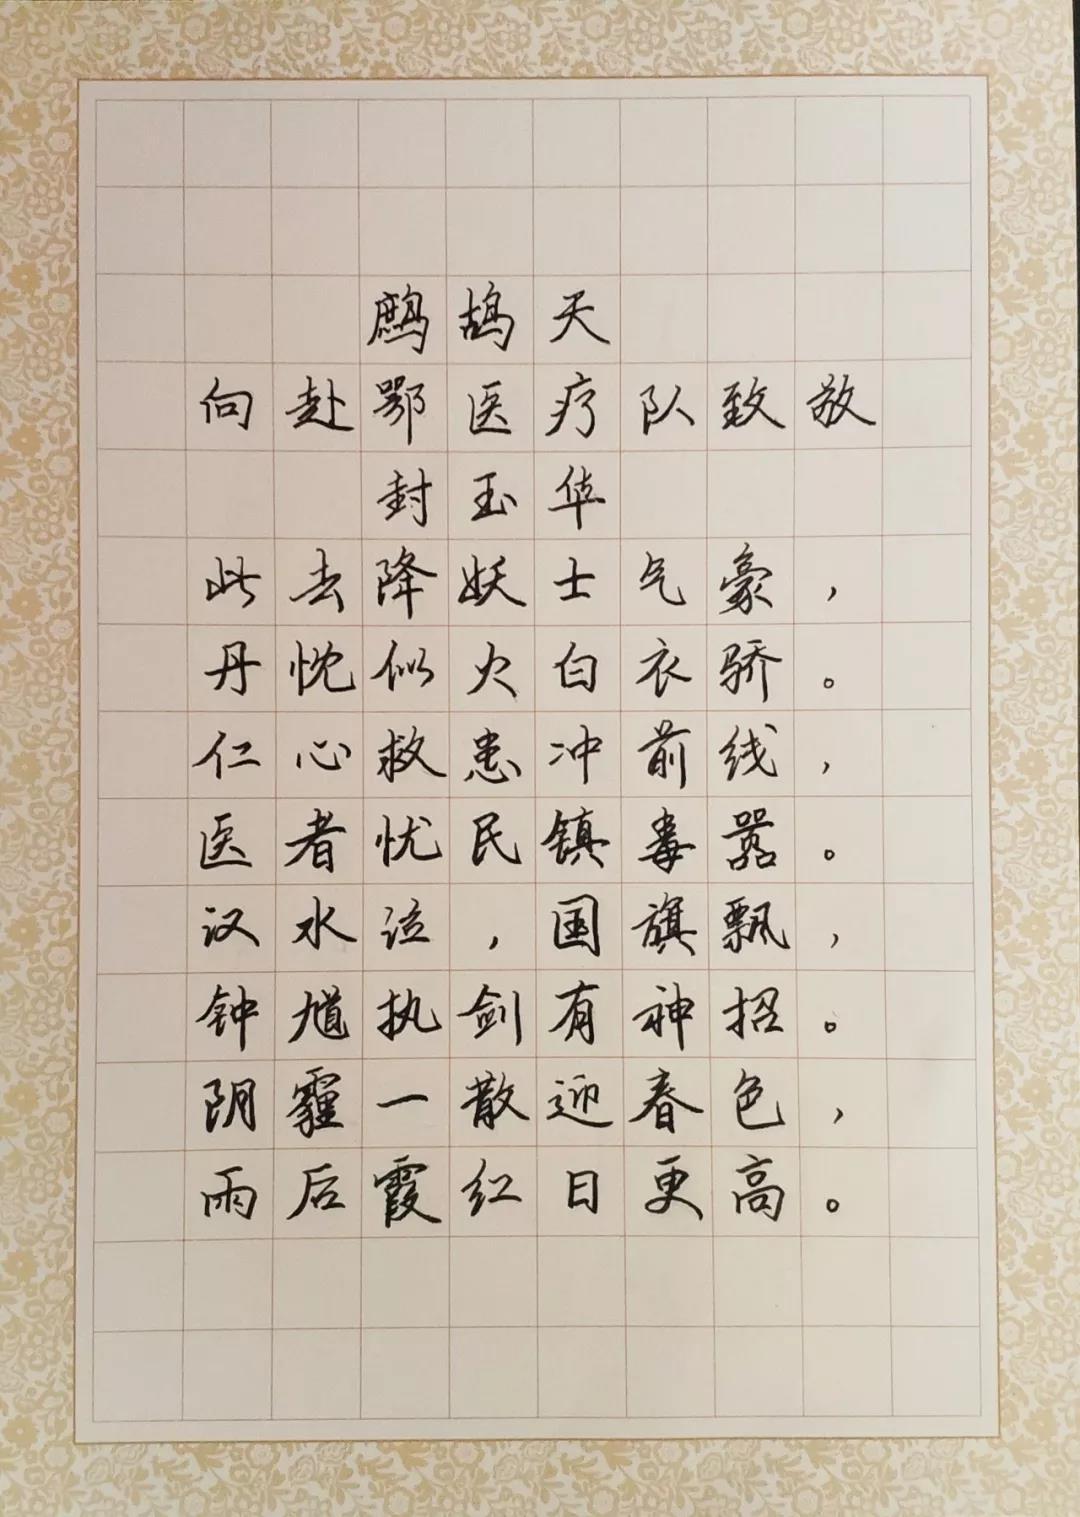 鹧鸪天
向赴鄂医疗队致敬
封玉华
此去降妖士气豪，
丹忱似火白衣骄。
仁心救患冲前线，
医者忧民镇毒嚣。
汉水泣，国旗飘，
钟馗执剑有神招。
阴霾一散迎春色，
雨后霞红日更高。